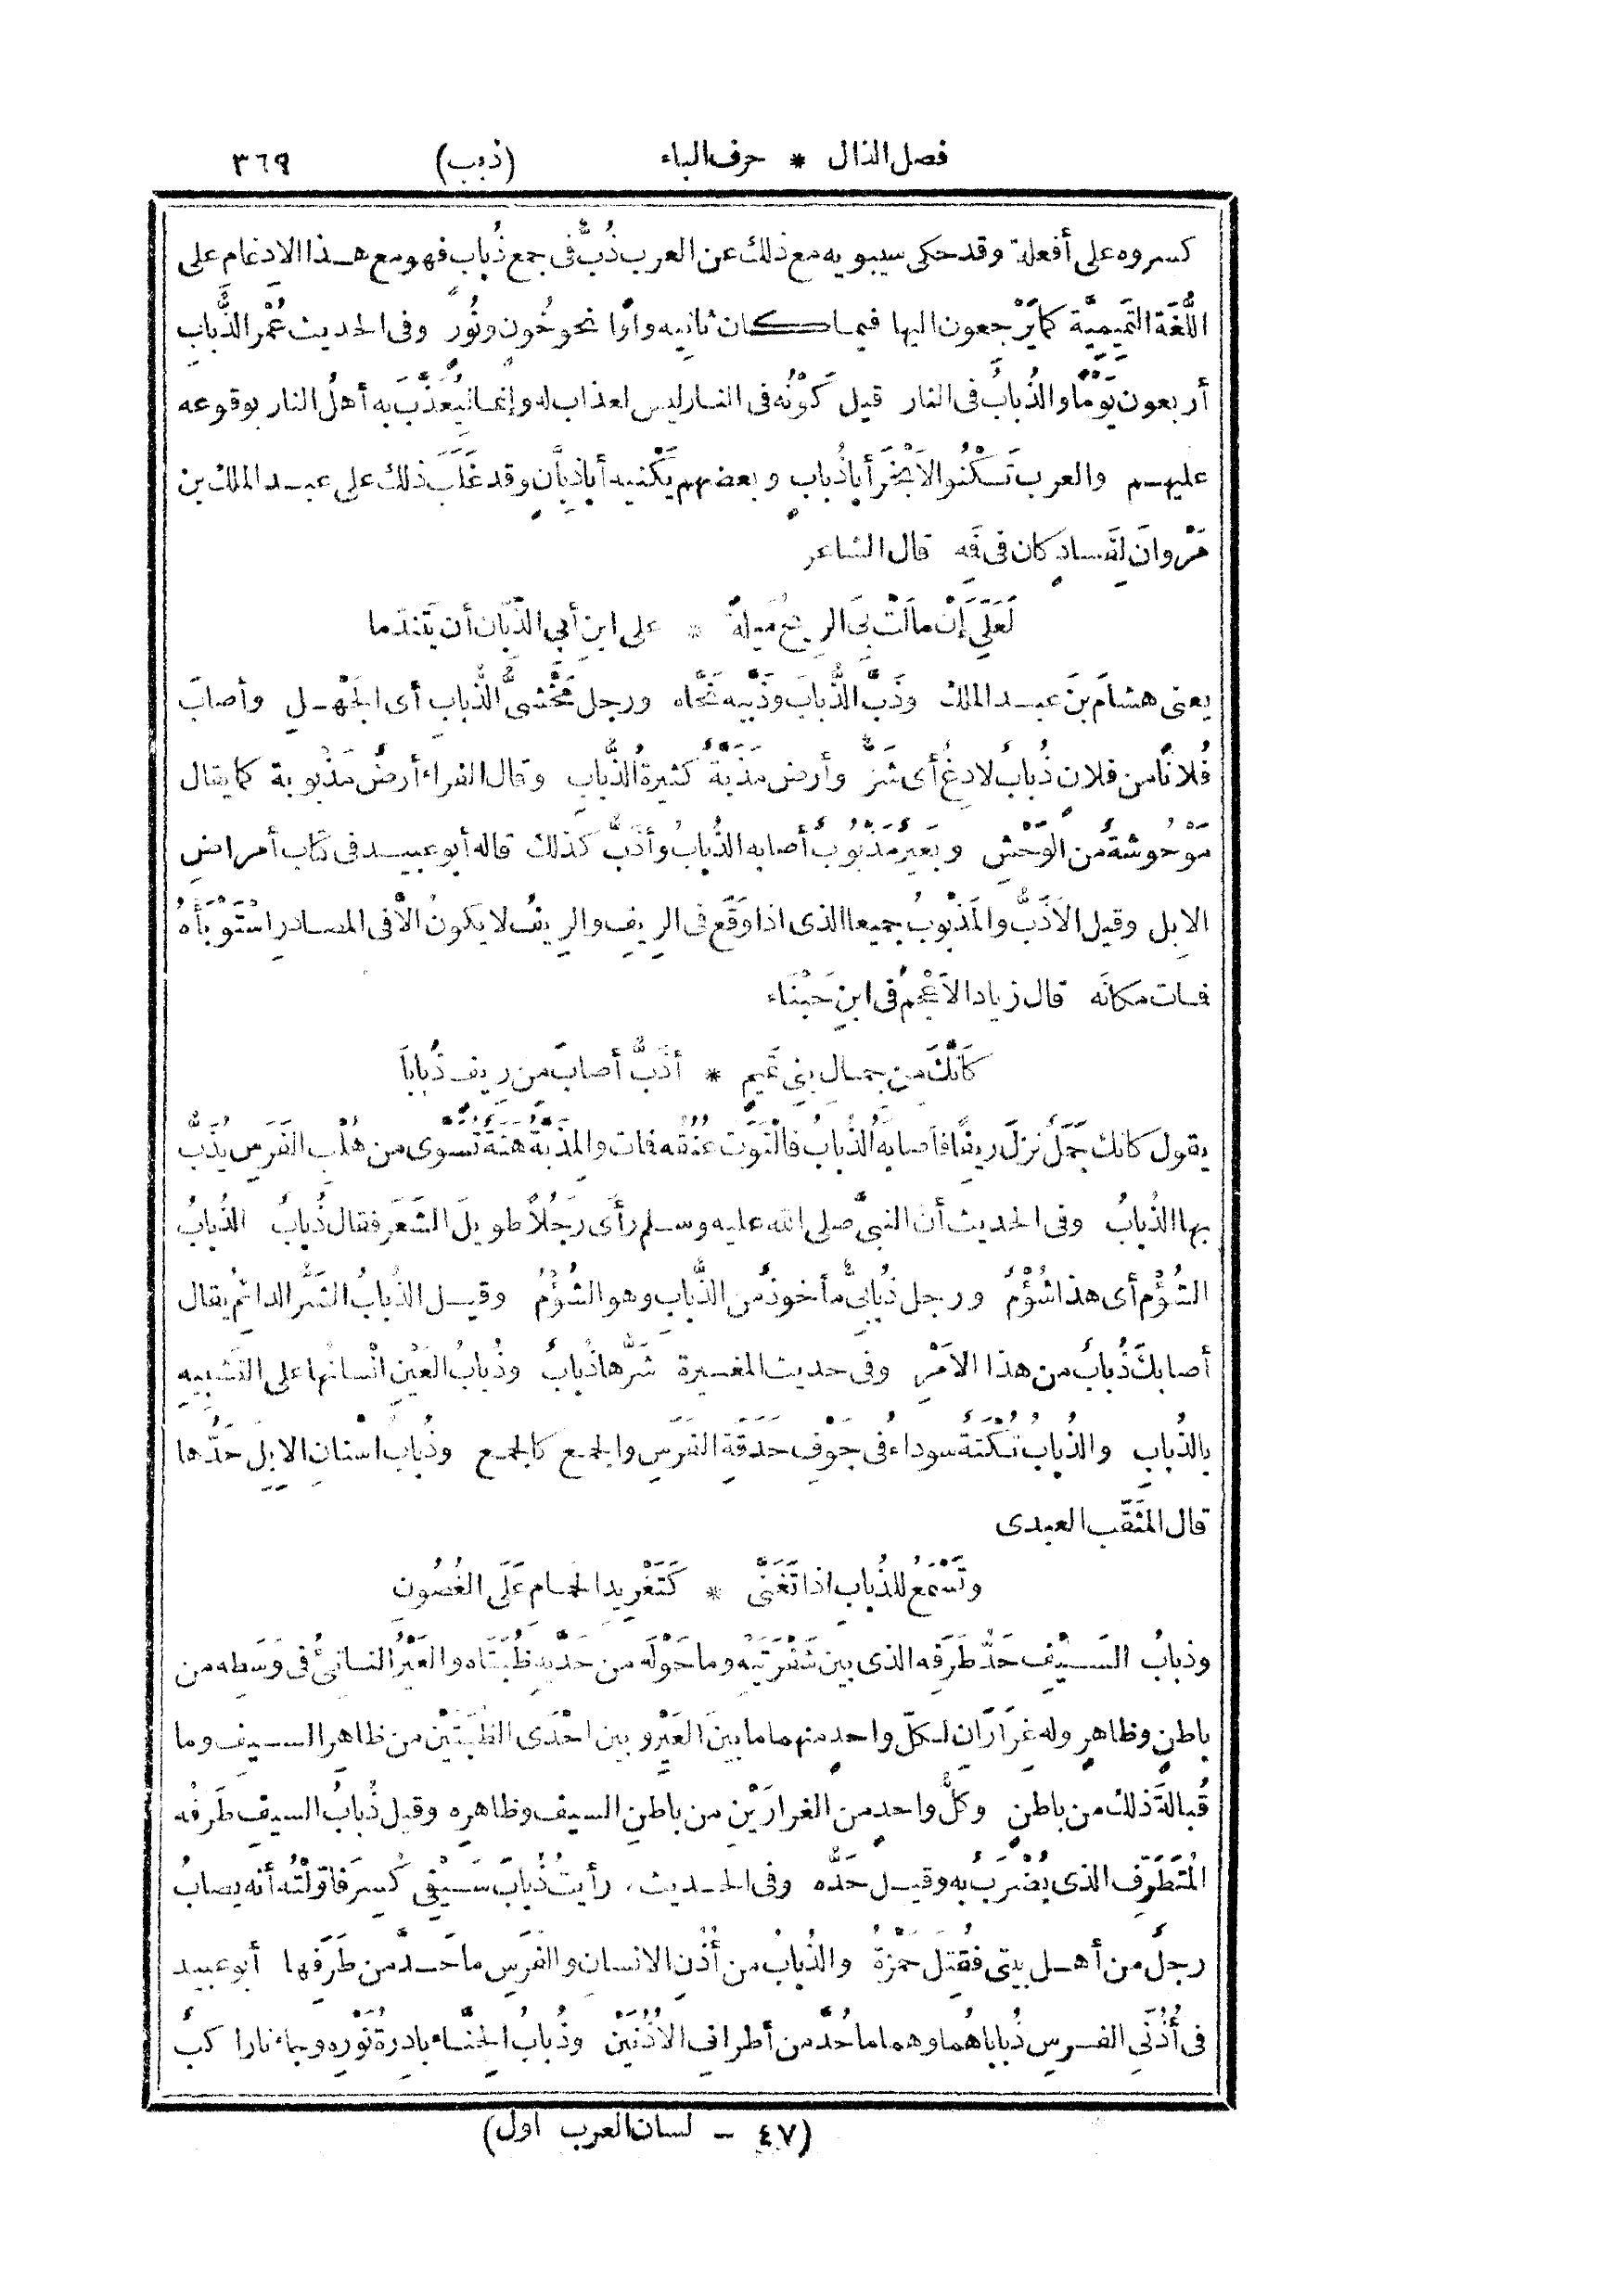 فصل الذال * حرف الباء (ذبب) ٣٦٩
كسروه على أفعلة وقد حكى سيبويه مع ذلك عن العرب ذُبٌّ فى جمع ذُباب فهو مع هذا الادغام على
اللُّغَة التَّمِيمِيَّة كما يَرْجعون اليها فيما كان ثانِيه واوًا نحو خُونٍ ونُورٍ وفى الحديث عُمْر الذُّبابِ
أربعون يَوْمًا والذُّبابُ فى النار قيل كَوْنُه فى النار ليس لعذاب له وإنما لِيُعَذَّبَ به أهلُ النار بوقوعه
عليهم والعرب تَكْنُو الأَبْخَرَ أبا ذُبابٍ وبعضهم يَكْنيه أبا ذِبَّانٍ وقد غَلَبَ ذلك على عبد الملك بن
مَرْوانَ لِفَسادٍ كان فى فَمِه قال الشاعر
لَعَلِّيَ إنْ مالَتْ بِيَ الرِّيحُ مَيْلَةً * على ابنِ أبى الذِّبَّان أن يَتَنَدَّما
يعنى هشامَ بنَ عبد الملك وذَبَّ الذُّبابَ وذَبَّبَه نَحَّاه ورجل مَخْشىُّ الذُّبابِ أى الجَهْلِ وأصابَ
فُلانًا من فلان ذُبابٌ لادِغٌ أى شَرٌّ وأرض مَذَبَّةٌ كثيرةُ الذُّبابِ وقال الفراء أرضٌ مَذْبُوبة كما يقال
مَوْحُوشةٌ من الوَحْشِ وبَعيرٌ مَذْبُوبٌ أصابه الذُّبابُ وأذَبُّ كذلك قاله أبو عبيد فى كتاب أمراضِ
الابِل وقيل الأَذَبُّ والمَذْبُوبُ جميعا الذى اذا وَقَع فى الرِّيفِ والريفُ لا يكونُ الّا فى المصادرِ اسْتَوْبَأَهُ
فمات مكانَه قال زياد الأَعْجَمُ فى ابنِ حَبْنَاء
كأنَّكَ من جِمالِ بنى تَميمٍ * أذَبُّ أصابَ من رِيفٍ ذُبابَا
يقول كانك جَمَلٌ نزلَ ريفًا فأصابَهُ الذُّبابُ فالْتَوَت عُنُقُه فمات والمِذَبَّةُ هَنَةٌ تُسَوَّى من هُلْبِ الفَرَسِ يُذَبُّ
بها الذُّبابُ وفى الحديث أنّ النبىّ صلى الله عليه وسلم رأَى رَجُلاً طويلَ الشَّعَر فقال ذُبابٌ الذُّبابُ
الشُّؤْم أى هذا شُؤْمٌ ورجل ذُبابىٌّ مأخوذٌ من الذُّبابِ وهو الشُّؤْمُ وقيل الذُّبابُ الشَّرُّ الدائم يُقال
أصابكَ ذُبابٌ من هذا الأَمْرِ وفى حديث المغيرة شَرُّها ذُبابٌ وذُبابُ العَيْنِ انْسانُها على التَّشبِيهِ
بالذُّبابِ والذُّبابُ نُكْتَةٌ سوداء فى جَوْفِ حَدَقَةِ الفَرَسِ والجمع كالجمع وذُبابُ اسنانِ الابِلِ حَدُّها
قال المُثَقّب العبدى
وتَسْمَعُ للذُّبابِ اذا تَغَنَّى * كَتَغْرِيدِ الحَمام عَلَى الغُصُونِ
وذبابُ السَّيْفِ حَدُّ طَرَفِه الذى بين شَفْرَتَيْهِ وما حَوْلَه من حَدَّيْهِ ظُبَتَاه والعَيْرُ الناتئُ فى وَسَطِه من
باطنٍ وظاهرٍ وله غِرَارَانِ لكلّ واحدٍ منهما ما بينَ العَيْرِ وبين احْدَى الظُّبَتَيْن من ظاهِرِ السيفِ وما
قُبالَةَ ذلك من باطنٍ وكلُّ واحدٍ من الغرارَيْنِ من باطنِ السيفِ وظاهرِه وقيل ذُبابُ السيفِ طَرَفُه
المُتَطَرِّفُ الذى يُضْرَبُ به وقيل حَدُّه وفى الحديث رأيتُ ذُبابَ سَيْفى كُسِرَ فأوّلْتُه أنه يصابُ
رجلٌ من أهل بيتى فقُتِلَ حَمْزةُ والذُّبابُ من أُذُنِ الانسانِ والفَرَسِ ما حَدَّ من طَرَفِها أبو عبيد
فى أُذُنَىِ الفرسِ ذُباباهُما وهما ما حُدَّ من أطرافِ الأُذُنَيْنِ وذُبابُ الحِنَّاء بادِرةُ نَوْرِه وجاءنا راكبٌ
(٤٧ – لسان العرب اول)